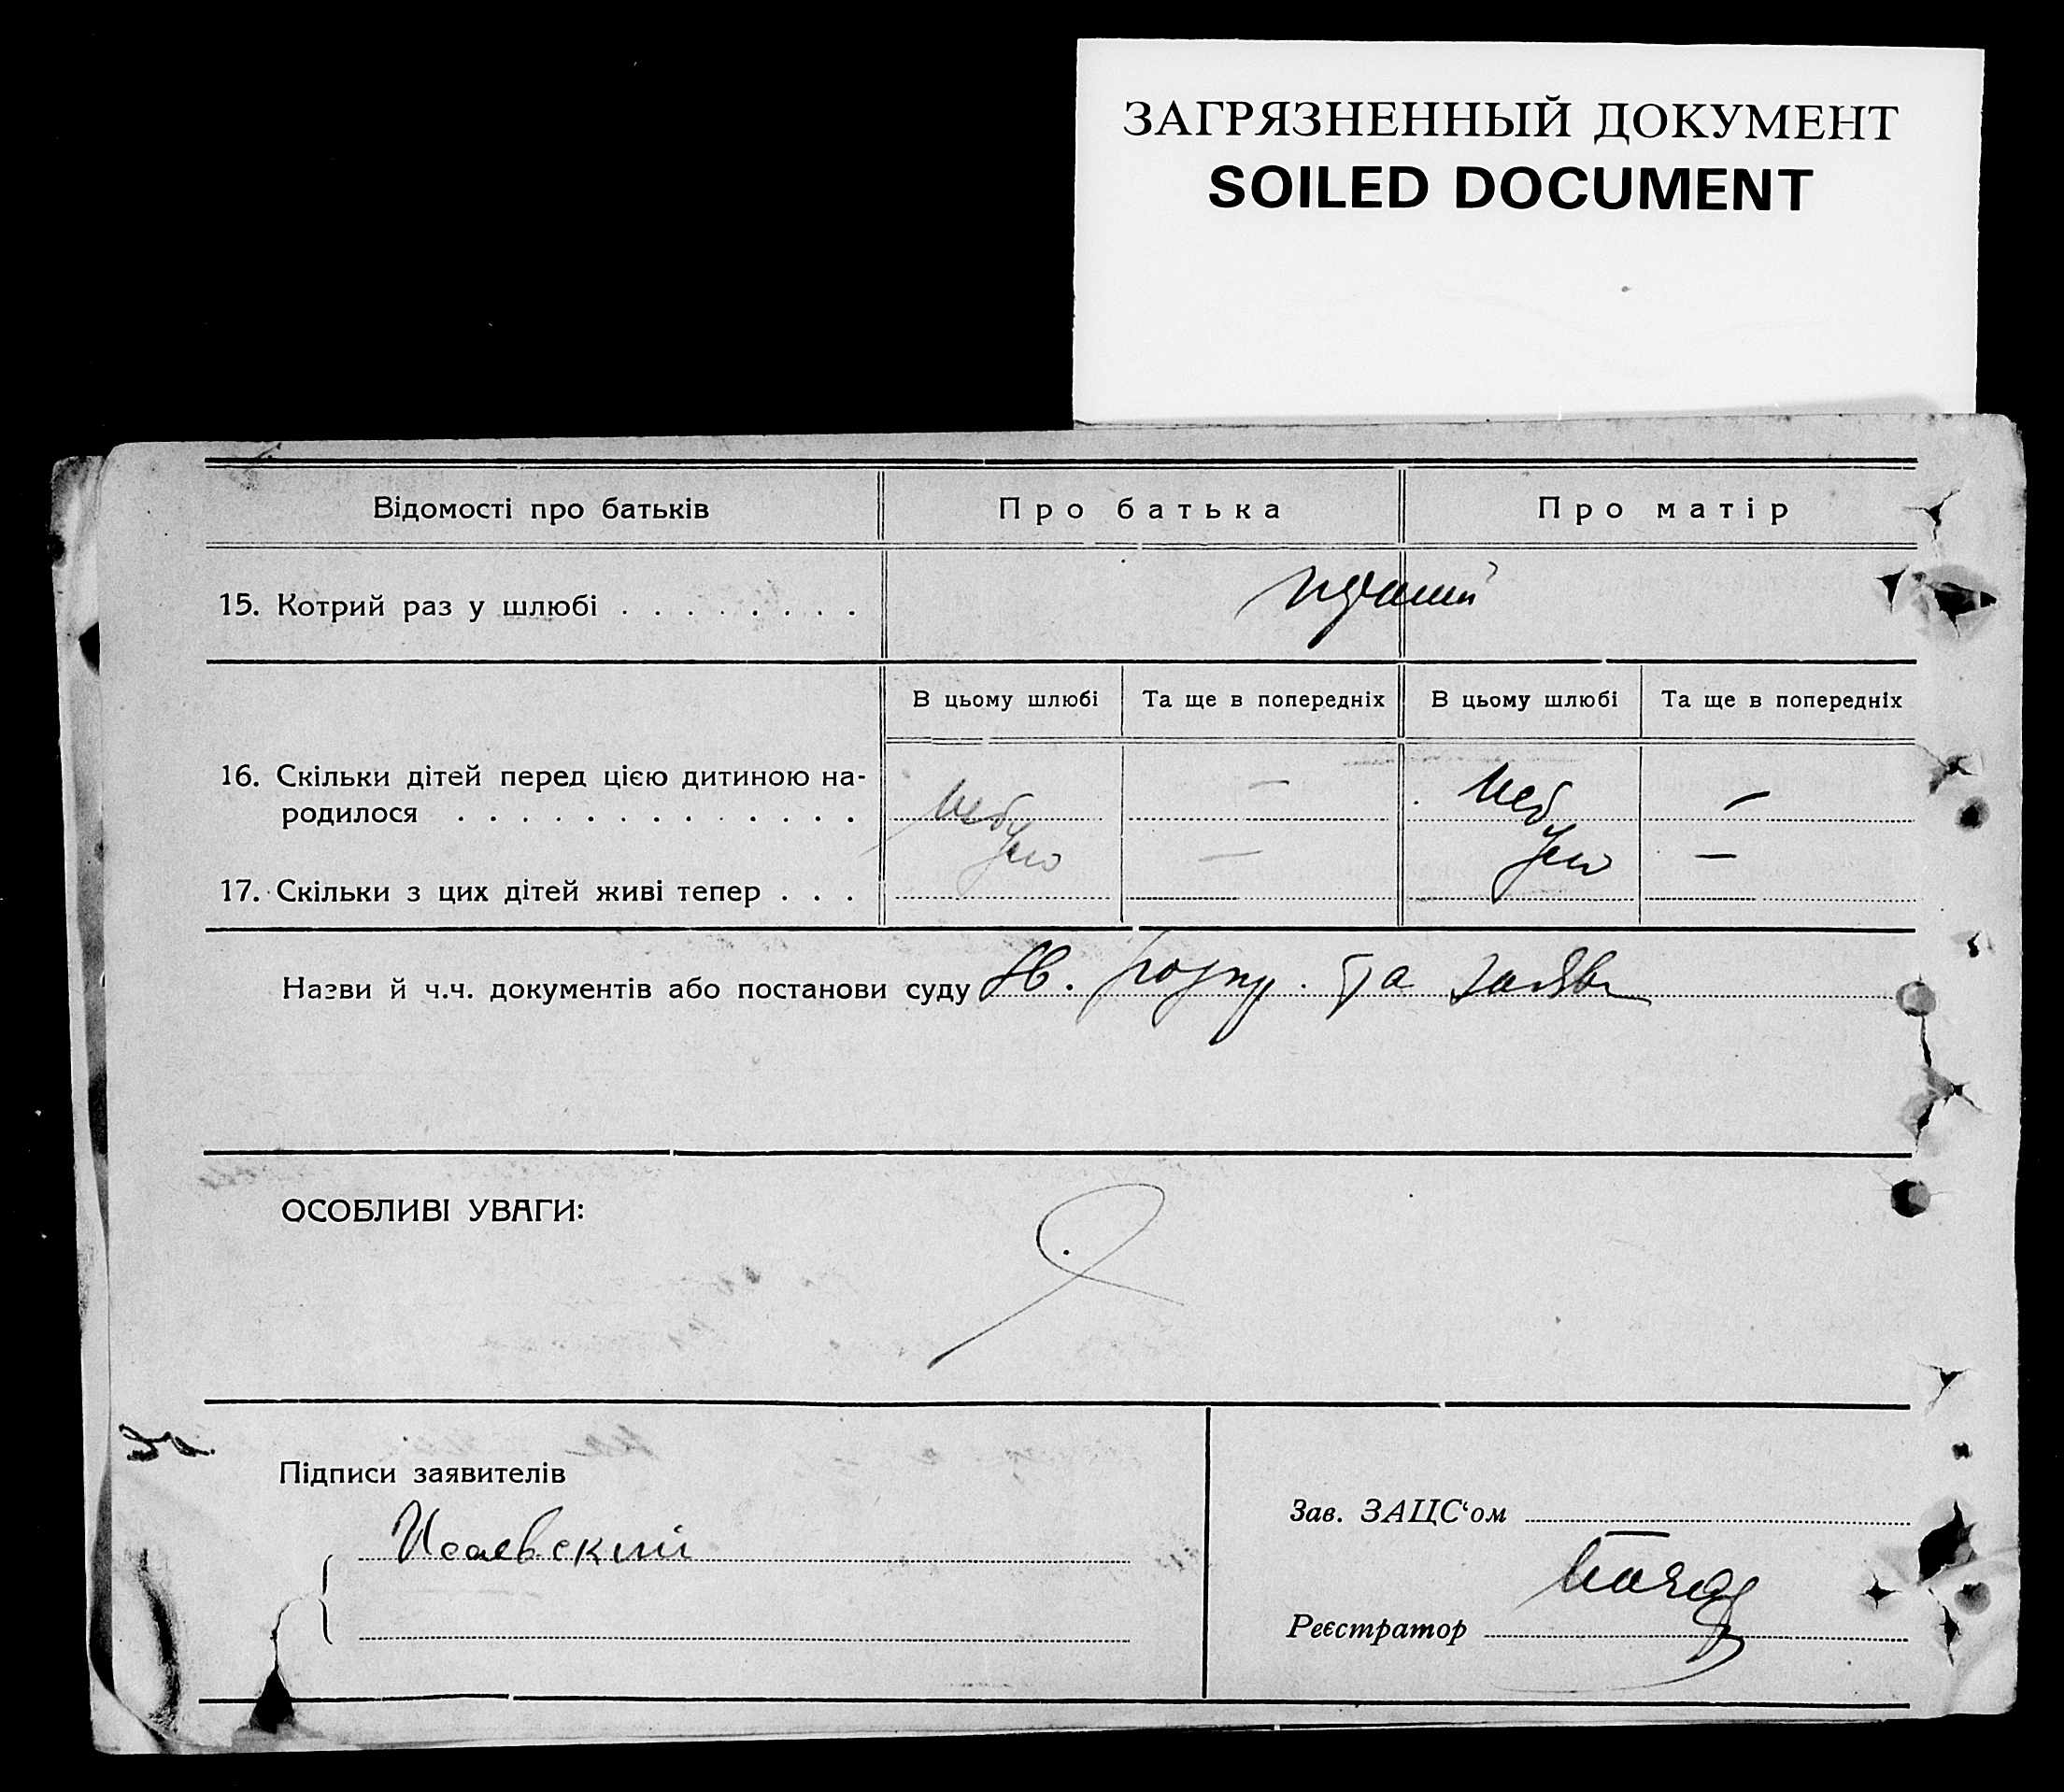 ЗАГРЯЗНЕННЫЙ ДОКУМЕНТ
SOILED DOCUMENT
Відомості про батьків
Про батька
Про матір
15. Котрий раз у шлюбі . . . . . . . .
перший
В цьому шлюбі
Та ще в попередніх
В цьому шлюбі
Та ще в попередніх
16. Скільки дітей перед цією дитиною на-
родилося . . . . . . . . . . . . .
небуло
—
небуло
—
17. Скільки з цих дітей живі тепер . . .
—
—
Назви й ч.ч. документів або постанови суду
та заяви
ОСОБЛИВІ УВАГИ:
Підписи заявителів
Исаевский
Зав. ЗАЦС‘ом
Реєстратор